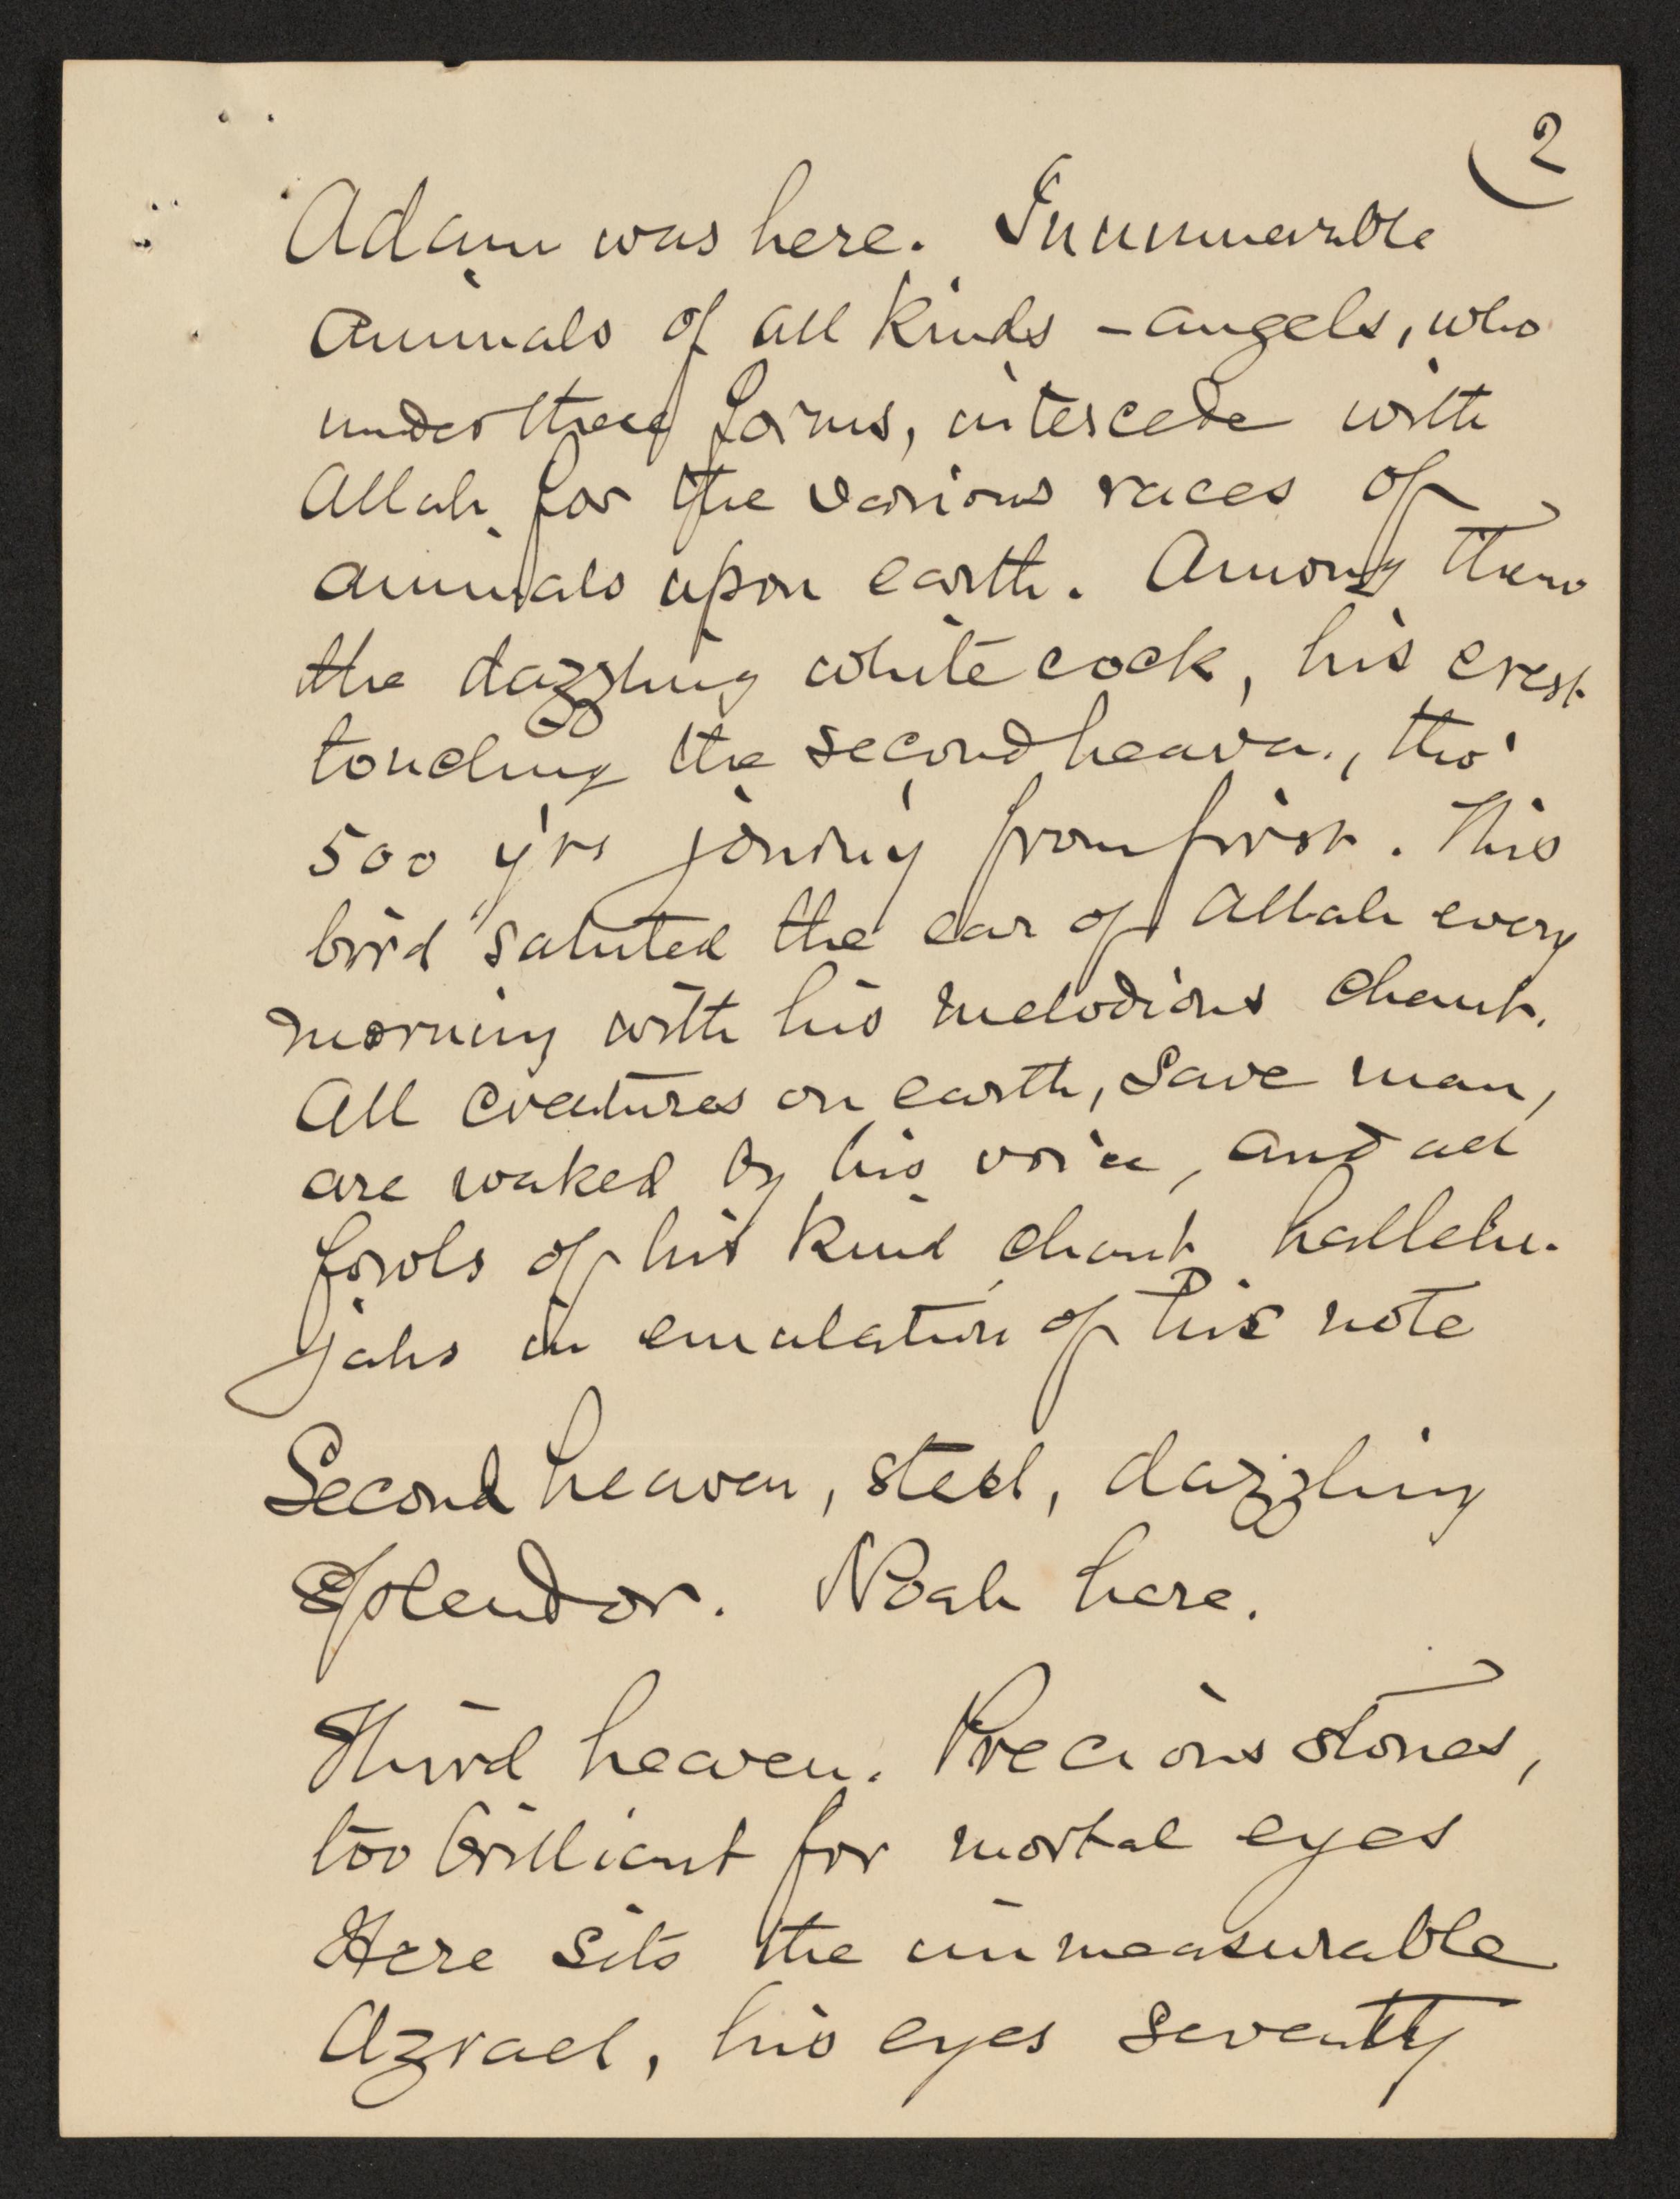 2
Adam was here. Innumerable
animals of all kinds - angels, who
under these forms, intercede with
Allah for the various races of
animals upon earth. Among them
the dazzling white cock, his crest
touching the second heaven, tho'
500 y'rs journey from first. This
bird saluted the ear of Allah every
morning with his melodious chant.
All creatures on earth, save man,
are waked by his voice, and all
fowls of his kind chant hallelu-
jahs in emulation of his note
Second heaven, steel, dazzling
splendor. Noah here.
Third heaven. Precious stones,
too brilliant for mortal eyes
Here sits the immeasurable
Azrael, his eyes seventy